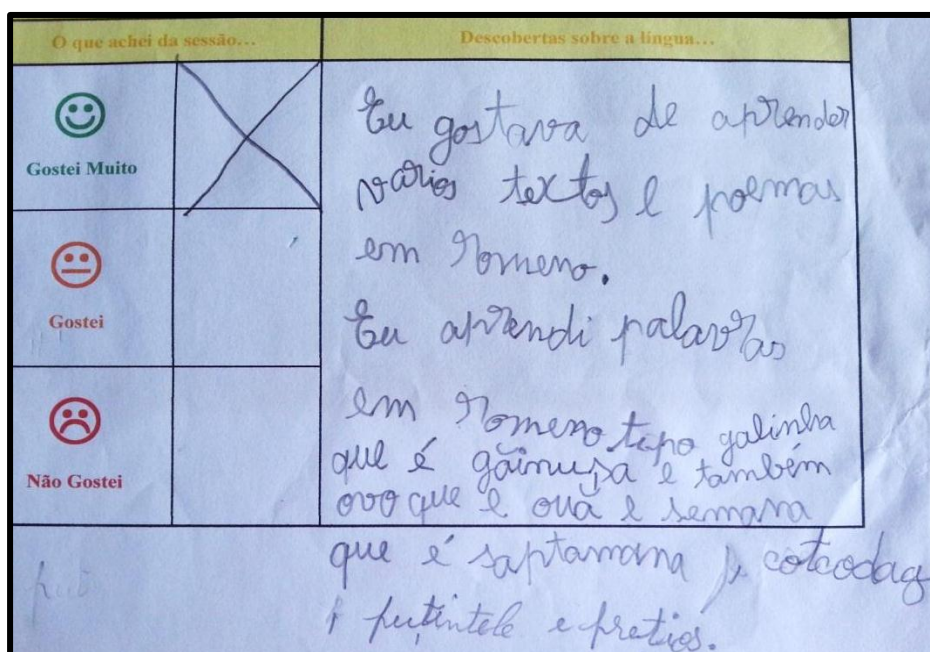 O que achei da sessão...
Descobertas sobre a língua...
Gostei Muito
Gostei
Não Gostei
Eu gostava de aprender
vários textos e poemas
em romeno.
Eu aprendi palavras
em romeno tipo galinha
que é găinușa e também
ovo que e ouă e semana
que é saptamana, cotcodag
puţintele e pretios.